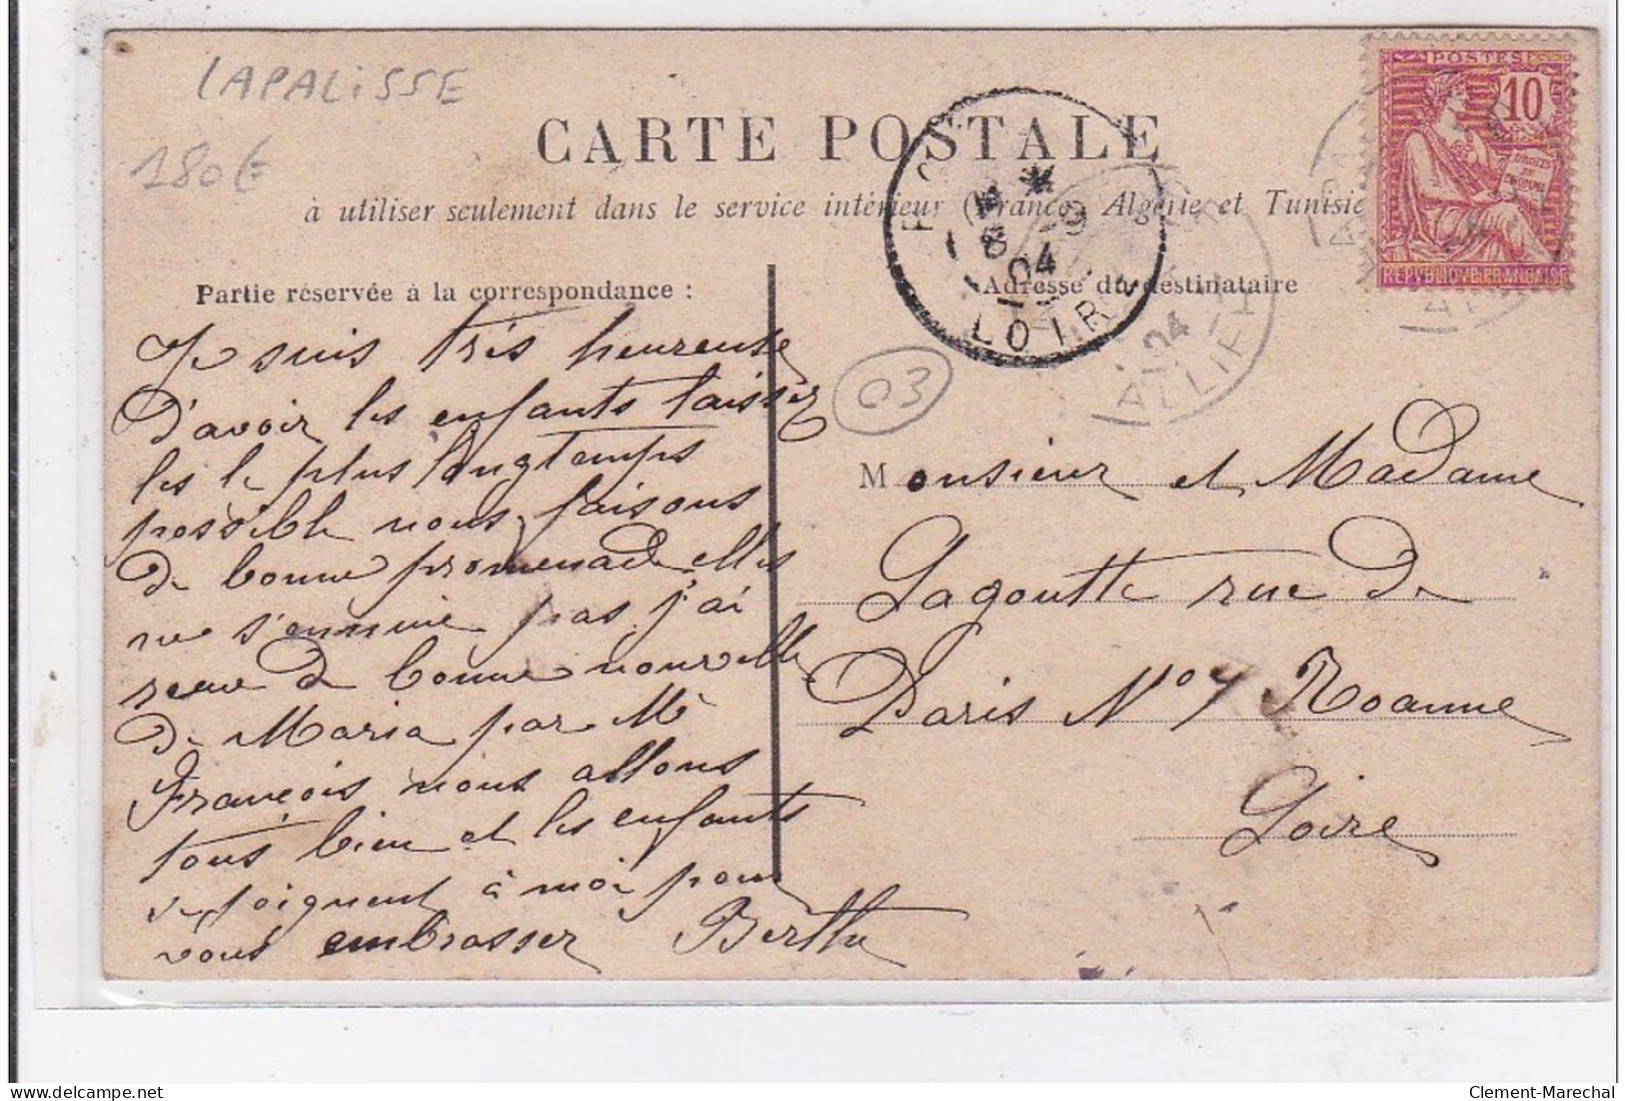 LAPALiSSE
180€
CARTE POSTALE
à utiliser seulement dans le service intérieur (France, Algérie et Tunisie
POSTES
10
DROITS
DE
L'HOMME
REPVBLIQVE FRANÇAISE
LOIRE
04
ALLIER
04
Partie réservée à la correspondance :
Adresse du destinataire
03
Je suis très heureuse
d'avoir les enfants laisser
les le plus longtemps
possible nous faisons
de bonne promenade elles
ne s'ennuie pas j'ai
reçue de bonne nouvelle
de Maria par Mr
François nous allons
tous bien et les enfants
se joignent à moi pour
vous embrasser Berthe
Monsieur et Madame
Lagoutte rue de
Paris N° 7 Roanne
Loire
Clement-Marechal